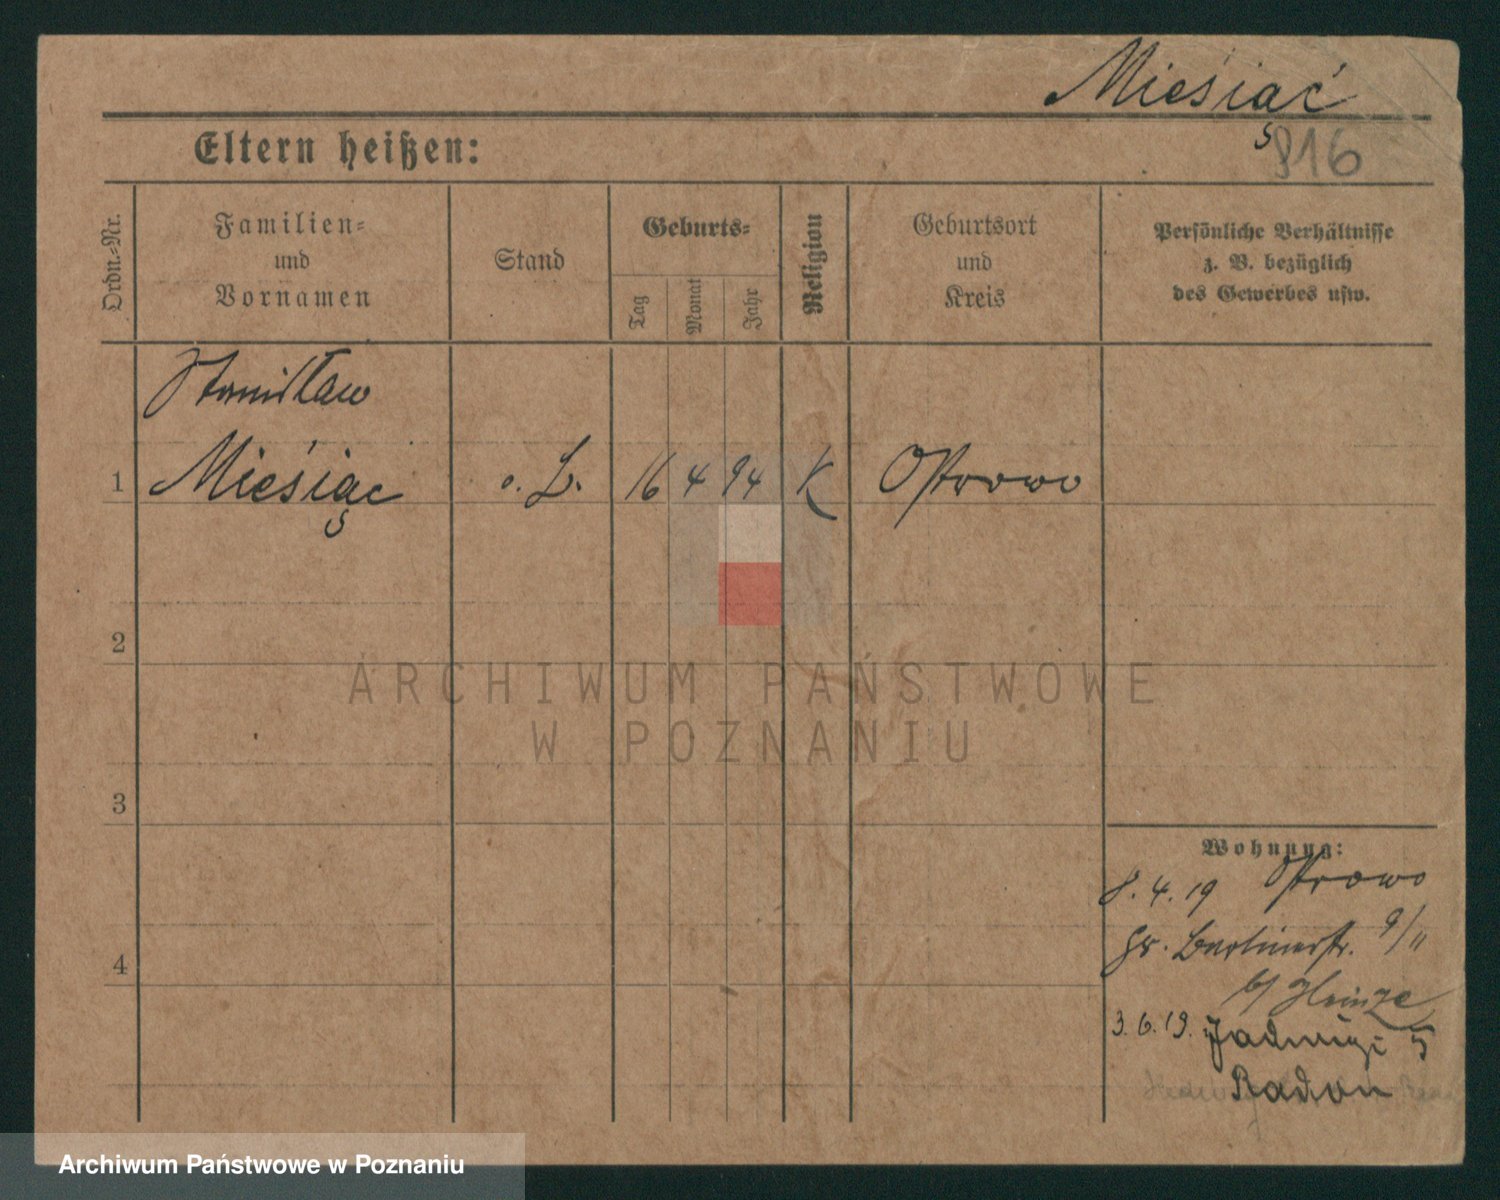 Mieśiąć
816
Eltern heißen:
Ordn.-Nr.
Familien-
und
Vornamen
Stand
Geburts-
Tag
Monat
Jahr
Religion
Geburtsort
und
Kreis
Persönliche Verhältnisse
z. B. bezüglich
des Gewerbes usw.
Stanisław
1 Mieśiąc o. L. 16 4 94 K Ostrowo
2
3
4
ARCHIWUM PAŃSTWOWE
W POZNANIU
Wohnung:
8.4.19 Ostrowo
Gr. Berlinerstr. 9/11
b/ Heinze
3.6.19. Jadwigi 5
Radon
Archiwum Państwowe w Poznaniu